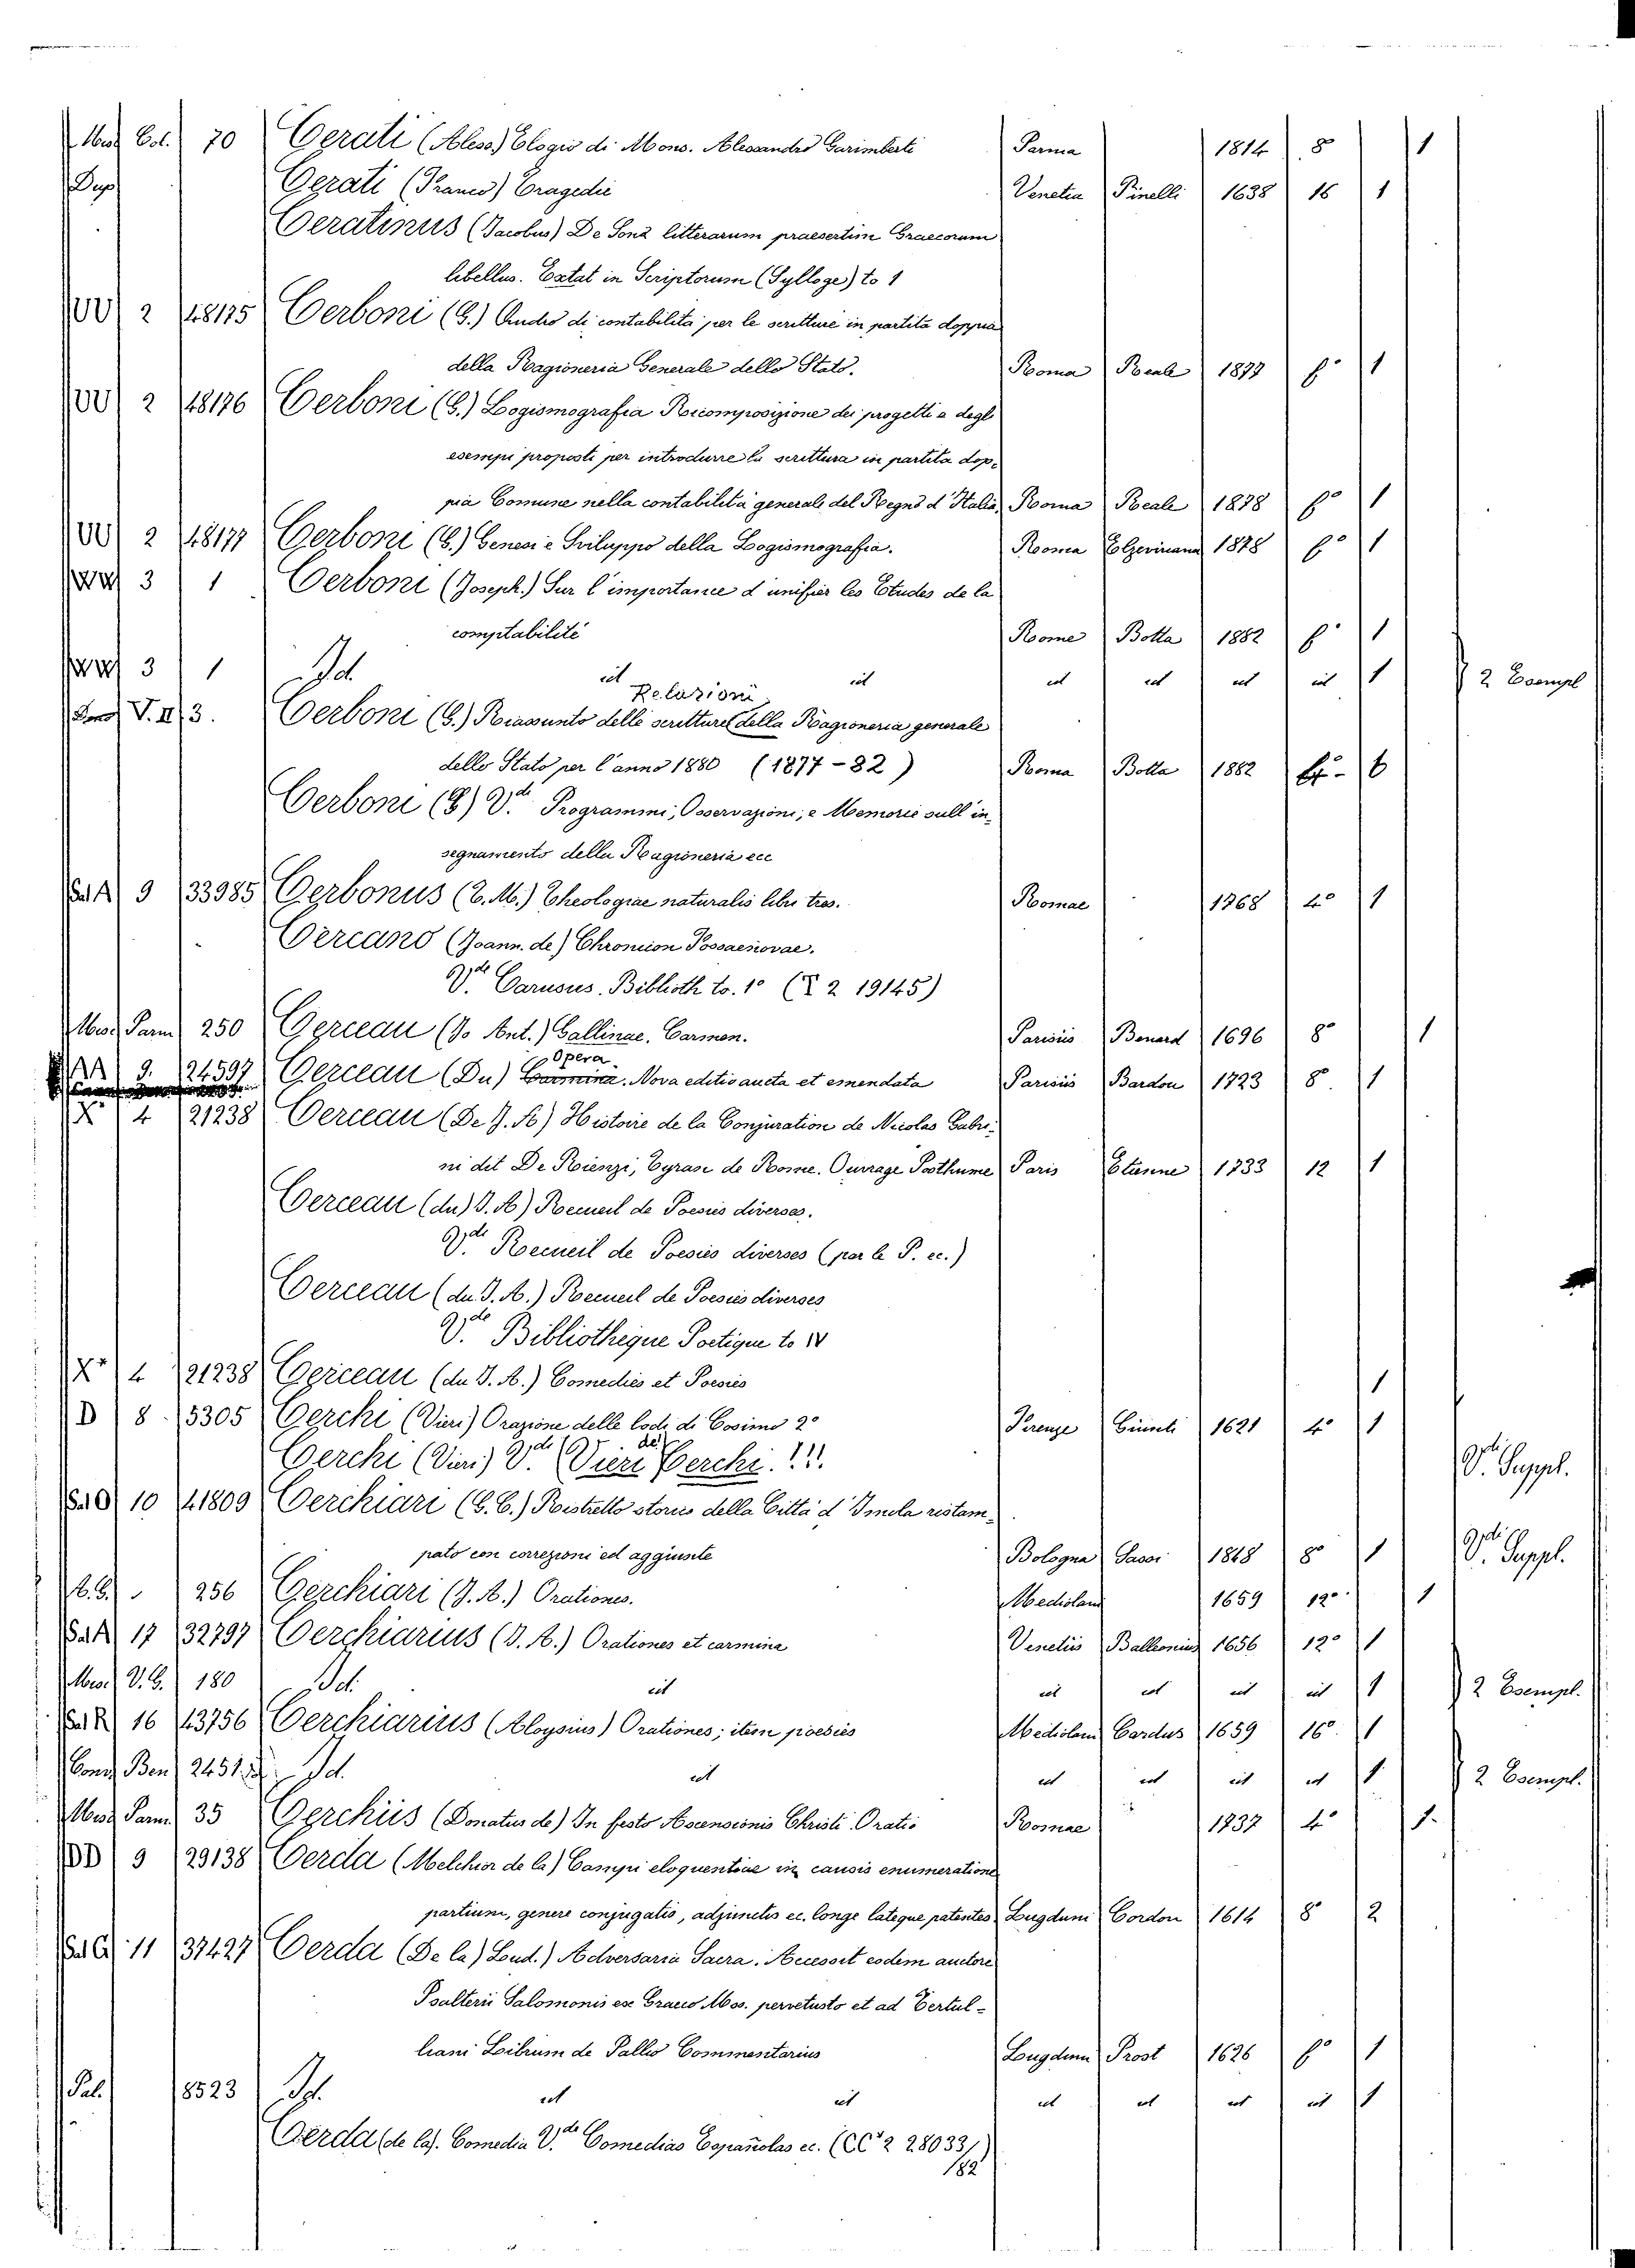 Misc. Col. 70 Cerati (Aless.) Elogio di Mons. Alessandro Garimberti Parma 1814 8 1
Dup Cerati (Franco) Tragedie Venetia Pinelli 1638 16 1
Ceratinus (Jacobus) De Sono litterarum praesertim Graecorum
libellus. Extat in Scriptorum (Sylloge) to 1
VV 2 48175 Cerboni (G.) di contabilità per le scritture in partita doppia
della Ragioneria Generale dello Stato. Roma Reale 1877 fo 1
VV 2 48176 Cerboni (G.) Logismografia Ricomposizione dei progetti e degl
esempi proposti per introdurre la scrittura in partita dop-
pia Comune nella contabilità generale del Regno d'Italia, Roma Reale 1878 fo 1
VV 2 48177 Cerboni (G.) Genesi e Sviluppo della Logismografia. Roma Elzeviriana 1878 fo 1
3 1 Cerboni (Joseph.) Sur l'importance d'unifier les Etudes de la
comptabilité Rome Botta 1882 fo 1
3 1 Id. id id id id id id 1 2 Esempl
Relazioni
V. II 3. Cerboni (G.) Riassunto delle scritture della Ragioneria generale
dello Stato per l'anno 1880 (1877-82) Roma Botta 1882 6
Cerboni (G) V.de Programmi, Osservazioni, e Memorie sull'in-
segnamento della Ragioneria ecc
Sal A 9 33985 Cerbonus (T. M.) Theologiae naturalis libri tres. Romae 1768 4o 1
Cercano (Joann. de) Chronicon Fossaenovae.
V.de Carusus. Biblioth to. 1o (T 2 19145)
Misc. Parm. 250 Cerceau (Jo Ant.) Gallinae. Carmen. Parisiis Benard 1696 8o 1
Opera
AA 9. 24597 Cerceau (Du) Carmina. Nova editio aucta et emendata Parisiis Bardou 1723 8o. 1
X 4 21238 Cerceau (De J. A) Histoire de la Conjuration de Nicolas Gabri-
ni dit De Rienzi, Tyran de Rome. Ouvrage Posthume Paris Etienne 1733 12 1
Cerceau (du) J. A) Recueil de Poesies diverses.
V.de Recueil de Poesies diverses (par le P. ec.)
Cerceau (du J. A.) Recueil de Poesies diverses
V.de Bibliotheque Poetique to IV
X 4 21238 Cerceau (du J. A.) Comedies et Poesies 1
D 8 5305 Cerchi (Vieri) Orazione delle lodi di Cosimo 2o Firenze Giunti 1621 4o 1
de'
Cerchi (Vieri) V.de (Vieri Cerchi. !!!. V. Suppl.
Sal O 10 41809 Cerchiari (G. C.) Ristretto storico della Città d'Imola ristam-
pato con correzioni ed aggiunte Bologna Sassi 1848 8o 1 V. Suppl.
256 Cerchiari (J. A.) Orationes. Mediolani 1659 12o 1
Sal A 17 32797 Cerchiarius (J. A.) Orationes et carmina Venetiis Balleonius 1656 12o 1
Misc. V. G. 180 Id. id id id id id 1 2 Esempl.
Sal R 16 43756 Cerchiarius (Aloysius) Orationes; item poesies Mediolani Cardus 1659 16o. 1
Ben 2451 Id. id id id id id 1 2 Esempl.
Misc. Parm. 35 Cerchiis (Donatus de) In festo Ascensionis Christi Oratio Romae 1737 4o 1.
DD 9 29138 Cerda (Melchior de la) Campi eloquentiae in causis enumeratione
partium, genere conjugatis, adjunctis ec. longe lateque patentes Lugduni Cordon 1614 8o 2
Sal G 11 37427 Cerda (De la) Lud.) Adversaria Sacra. Accessit eodem auctore
Psalterii Salomonis ex Graeco Mss. pervetusto et ad Tertul-
liani Librum de Pallio Commentarius Lugduni Prost 1626 fo 1
Pal. 8523 Id. id id id id id id 1
Cerda (de la). Comedia V.de Comedias Españolas ec. (CC 2 28033/
182